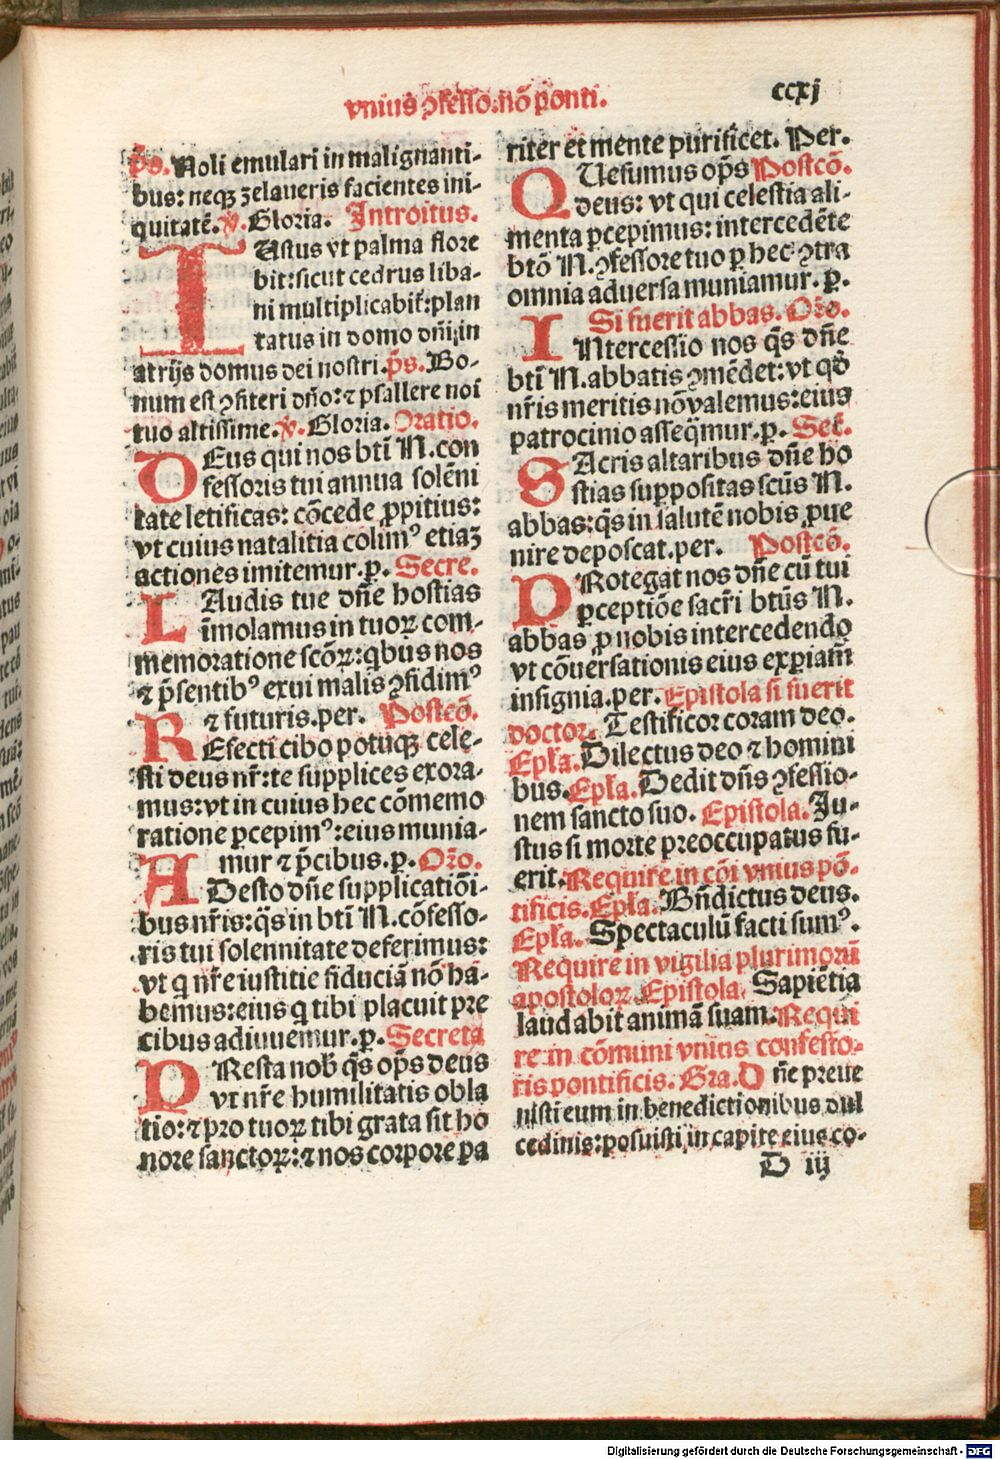 vnius ꝯfesso. nō ponti.
ccxj
p̄s. Noli emulari in malignanti-
bus: neqꝫ zelaueris facientes ini-
quitatē. ℣. Gloria. Introitus.
IUstus vt palma flore
bit: sicut cedrus liba-
ni multiplicabit̄: plan
tatus in domo dn̄i: in
atrijs domus dei nostri. p̄s. Bo-
num est ꝯfiteri dn̄o: ⁊ psallere noī
tuo altissime. ℣. Gloria. Oratio.
DEus qui nos btī N. con
fessoris tui annua solēni
tate letificas: cōcede ꝓpitius:
vt cuius natalitia colimꝰ etiaꝫ
actiones imitemur. ꝑ. Secre.
LAudis tue dn̄e hostias
īmolamus in tuoꝝ com-
memoratione scōꝝ: qbus nos
⁊ p̄sentibꝰ exui malis ꝯfidimꝰ
⁊ futuris. per. Postcō.
REfecti cibo potuqꝫ cele-
sti deus nr̄: te supplices exora-
mus: vt in cuius hec cōmemo
ratione ꝑcepimꝰ: eius munia-
mur ⁊ p̄cibus. ꝑ. Or̄o.
ADesto dn̄e supplicatiōi-
bus nr̄is: q̄s in btī N. cōfesso-
ris tui solennitate deferimus:
vt q nr̄e iustitie fiduciā nō hā-
bemus: eius q tibi placuit pre
cibus adiuuemur. ꝑ. Secreta
PResta nob̄ q̄s op̄s deus
vt nr̄e humilitatis obla
tio: ⁊ pro tuoꝝ tibi grata sit ho
nore sanctoꝝ: ⁊ nos corpore pa
riter et mente purificet. Per.
QUesumus op̄s Postcō.
deus: vt qui celestia ali-
menta ꝑcepimus: intercedēte
btō N. ꝯfessore tuo ꝑ hec ꝯtra
omnia aduersa muniamur. ꝑ.
Si fuerit abbas. Or̄o.
INtercessio nos q̄s dn̄e
btī N. abbatis ꝯmēdet: vt qd̄
nr̄is meritis nō valemus: eius
patrocinio asseq̄mur. ꝑ. Secr̄.
SAcris altaribus dn̄e ho
stias suppositas scūs N.
abbas: q̄s in salutē nobis ꝓue
nire deposcat. per. Postcō.
PRotegat nos dn̄e cū tui
ꝑceptiōe sacr̄i btūs N.
abbas ꝓ nobis intercedendo
vt cōuersationis eius exꝑiam̄
insignia. per. Epistola si fuerit
doctor. Testificor coram deo.
Epl̄a. Dilectus deo ⁊ homini
bus. Epl̄a. Dedit dn̄s ꝯfessio-
nem sancto suo. Epistola. Ju-
stus si morte preoccupatus fu-
erit. Require in cōi vnius pō-
tificis. Epl̄a. Bn̄dictus deus.
Epl̄a. Spectaculū facti sumꝰ.
Require in vigilia plurimorū
apostoloꝝ. Epistola. Sapiētia
laudabit animā suam. Requi
re in cōmuni vnius confesso-
ris pontificis. Gra. Dn̄e preue
nisti eum in benedictionibus dul
cedinis: posuisti in capite eius co-
D iij
Digitalisierung gefördert durch die Deutsche Forschungsgemeinschaft - DFG